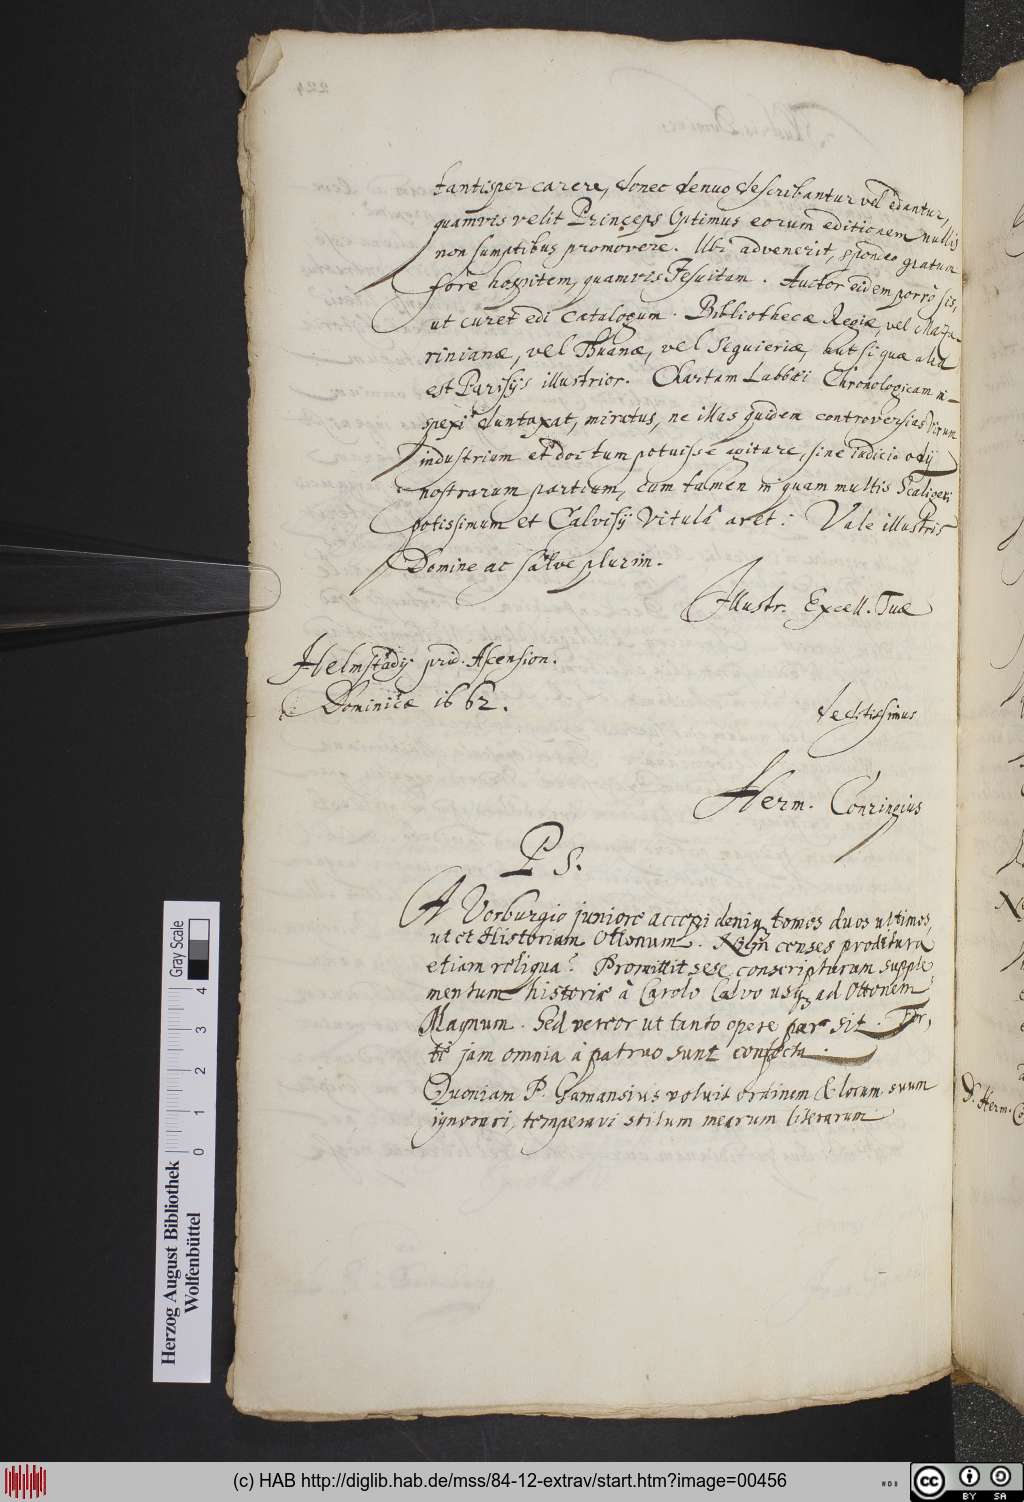 tantisper carere, donec denuo describantur vel edantur,
quamvis velit Princeps Optimus eorum editionem nullis
non sumptibus promovere. Ubi advenerit, spondeo gratum
fore hospitem, quamvis Jesuitam. Auctor eidem porrò sis,
ut curet edi Catalogum Bibliothecæ Regiæ, vel Maza-
rinianæ, vel Thuanæ, vel Seguieriæ, aut si quæ alia
est Parisijs illustrior. Chartam Labbæi Chronologicam in-
spexi duntaxat, miratus, ne illas quidem controversias virum
industrium et doctum potuisse agitare, sine indicio odij
nostrarum partium, cum tamen in quam multis Scaligeri
potissimum et Calvisij vitulâ aret: Vale illustris
Domine ac salve plurim.
Illustr. Excell. Tuæ
Helmstadij prid. Ascension.
Dominicæ 1662.
deditissimus
Herm. Conringius
P S.
A Vorburgio juniore accepi deniq; tomos duos ultimos,
ut et Historiam Ottonum. censes proditura
etiam reliqua? Promittit sese conscripturum supple
mentum historiæ à Carolo Calvo usq; ad Ottonem
Magnum. Sed vereor ut tanto opere par sit. For,
te jam omnia à patruo sunt confecta.
Quoniam P. Gamansius voluit ordinem & locum suum
ignorari, temperavi stilum mearum literarum
224
D. Herm. Co
Herzog August Bibliothek
Wolfenbüttel
Gray Scale
0 1 2 3 4
(c) HAB http://diglib.hab.de/mss/84-12-extrav/start.htm?image=00456
WDB
cc BY SA